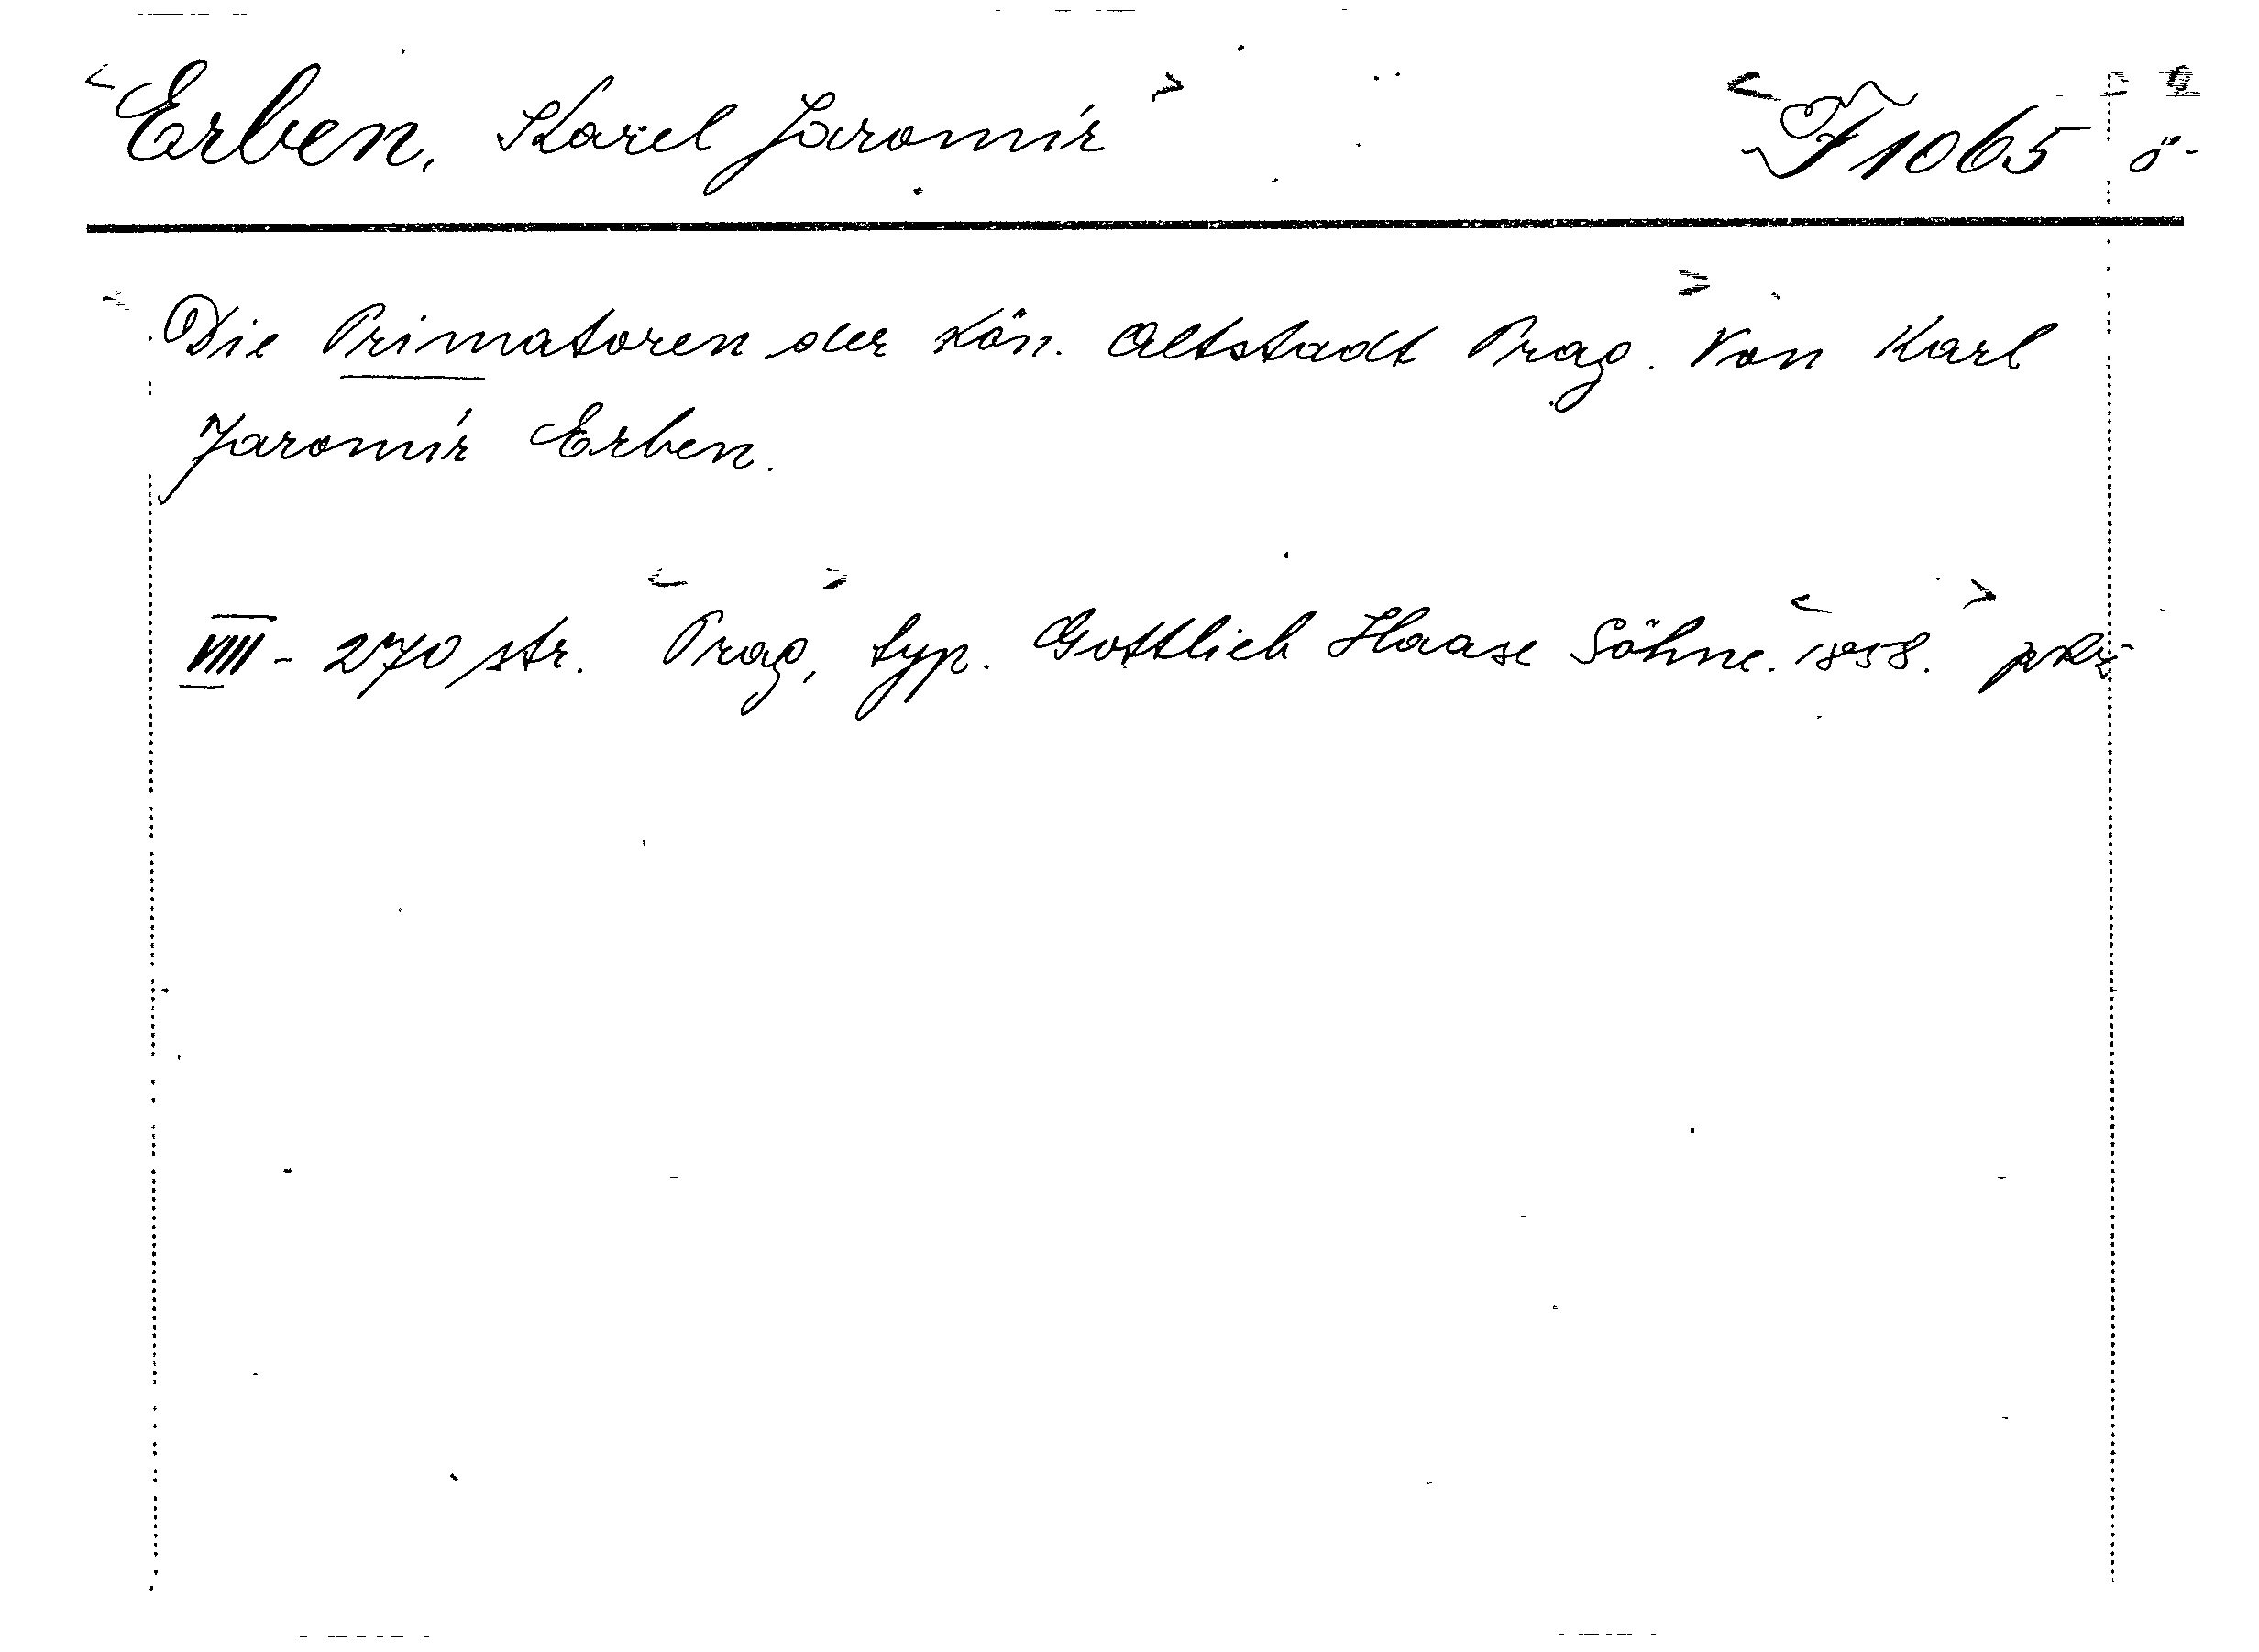 Erben, Karel Jaromír F 1065
Die Primatoren der kön. Altstadt Prag. Von Karl
Jaromír Erben.
VIII - 270 str. Prag, typ. Gottlieb Haase Söhne. 1858.